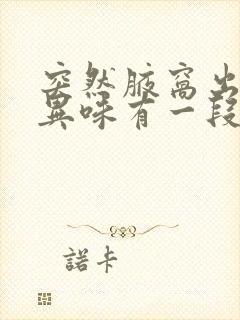 突然腋窩出
異味有一段
諾卡